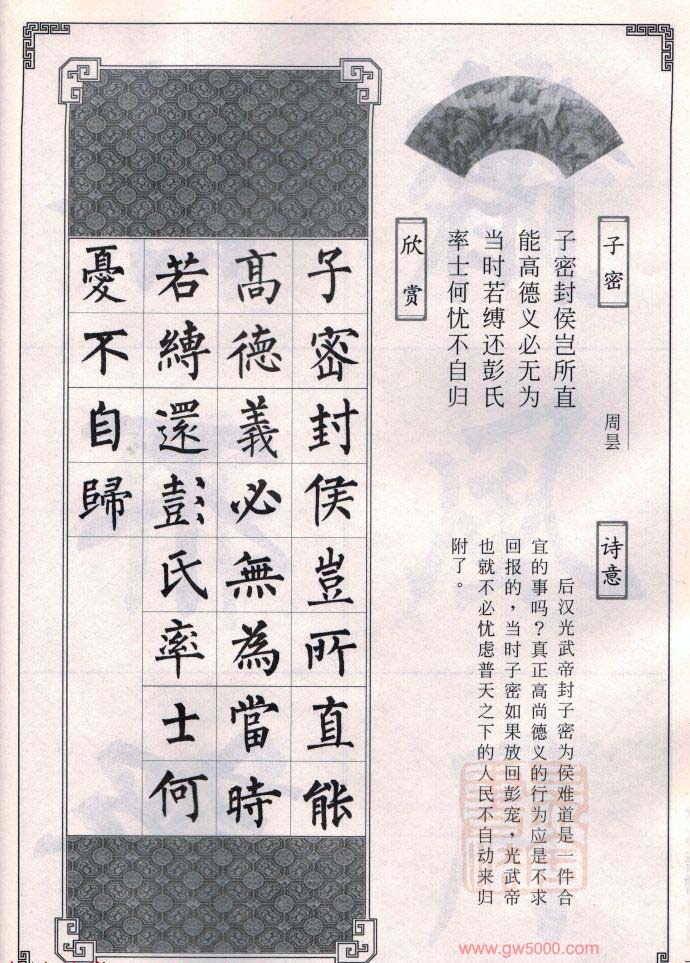 子密
周昙
子密封侯岂所直
能高德义必无为
当时若缚还彭氏
率士何忧不自归
诗意
后汉光武帝封子密为侯难道是一件合
宜的事吗？真正高尚德义的行为应是不求
回报的，当时子密如果放回彭宠，光武帝
也就不必忧虑普天之下的人民不自动来归
附了。
欣赏
子密封侯豈所直能
高德義必無為當時
若縛還彭氏率士何
憂不自歸
www.gw5000.com